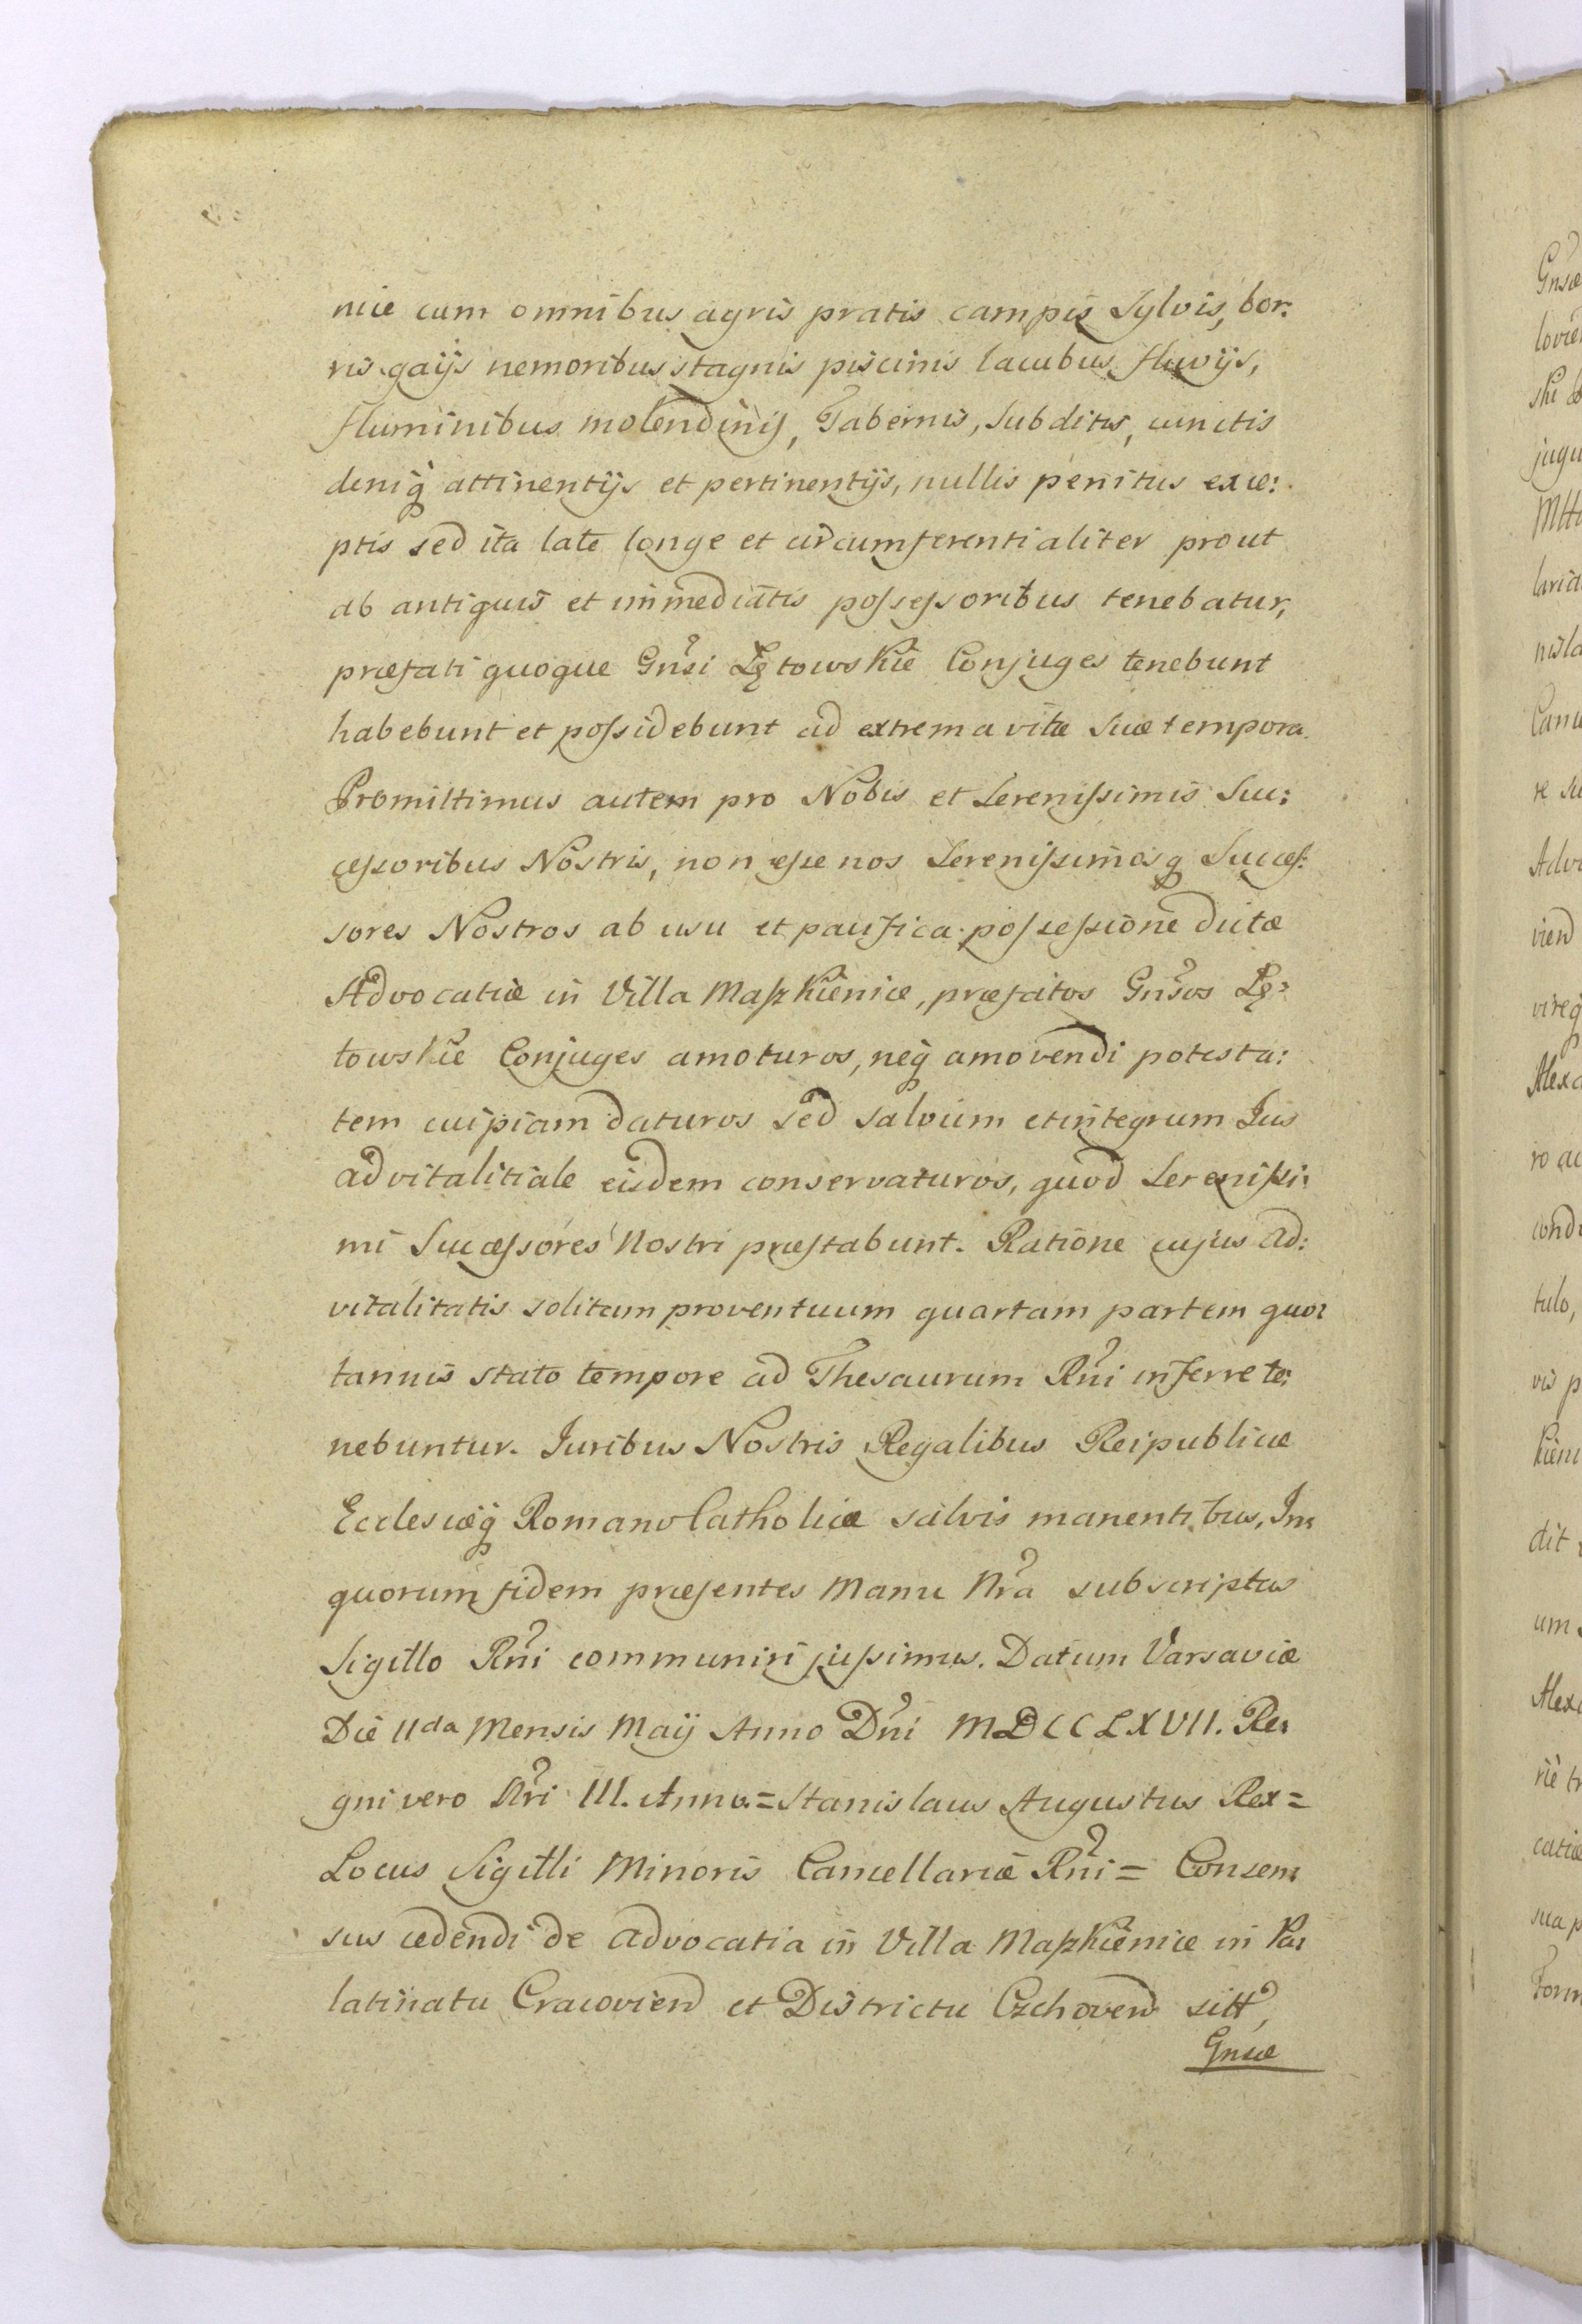 nice cum omnibus agris pratis campis Sylvis, bor:
ris gaijs nemoribus stagnis piscinis lacubus fluvijs,
fluminibus molendinis, Tabernis, Subditis, cunctis
deniq attinentijs et pertinentijs, nullis penitus exce:
ptis sed ita late longe et circumferentialiter prout
ab antiquis et immediatis possessoribus tenebatur,
præfati quoque Gnsi Łętowskie Conjuges tenebunt
habebunt et possidebunt ad extrema vitæ suæ tempora.
Promittimus autem pro Nobis et Serenissimis Suc:
cessoribus Nostris, non esse nos Serenissimosq Succes:
sores Nostros ab usu et paçifica possessione dictæ
Advocatiæ in Villa Maszkienice, præfatos Gnsos Łę:
towskie Conjuges amoturos, neq amovendi potesta:
tem cuipiam daturos sed salvum et integrum Jus
advitalitiale eisdem conservaturos, quod Serenissi:
mi Successores Nostri præstabunt. Ratione cujus ad:
vitalitatis solitam proventuum quartam partem quo:
tannis stato tempore ad Thesaurum Rni inferre te:
nebuntur. Juribus Nostris Regalibus Reipublicæ
Ecclesiæq Romano Catholicæ salvis manentibus, In
quorum fidem præsentes Manu Nra subscriptas
Sigillo Rni communiri jussimus. Datum Varsaviæ
Die 11da Mensis Maij Anno Dni MDCCLXVII. Re:
gni vero Nri III. Anno = Stanislaus Augustus Rex =
Locus Sigilli Minoris Cancellariæ Rni = Consen:
sus cedendi de advocatia in Villa Maszkienice in Pa:
latinatu Cracovien et Districtu Czchoven sitt,
Gnsæ